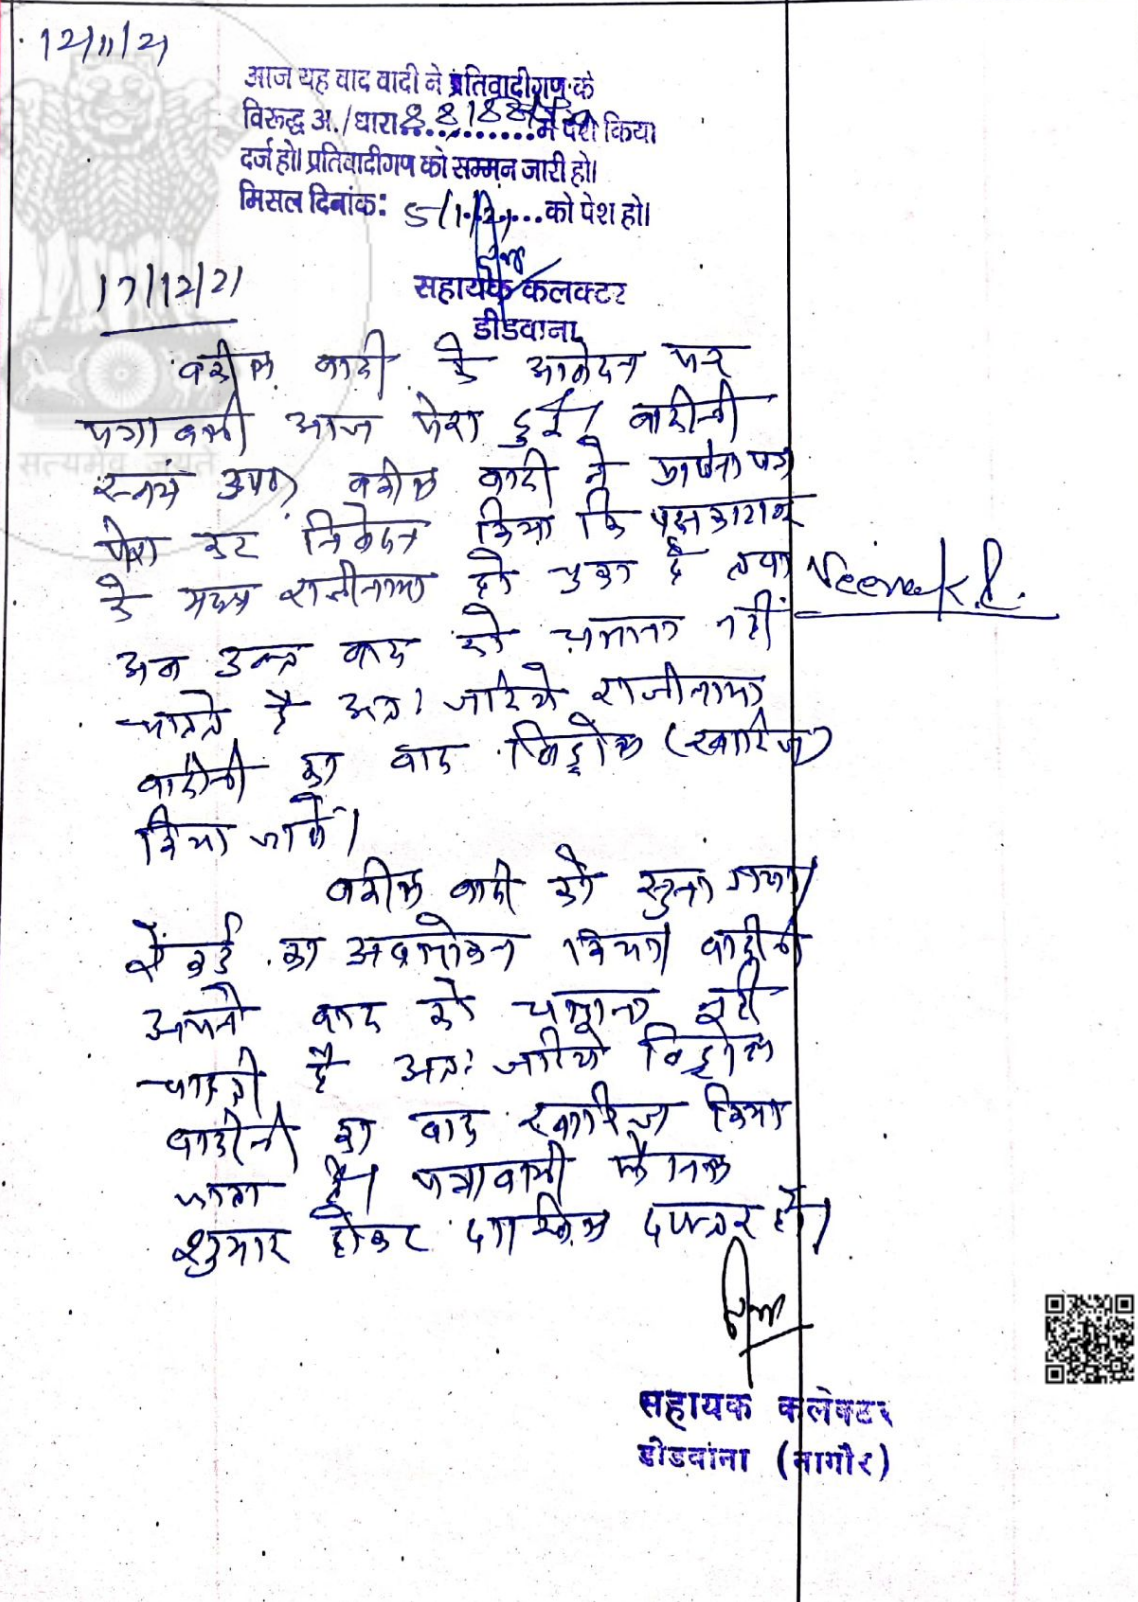 12/11/21
आज यह वाद वादी ने प्रतिवादीगण के
विरूद्ध अ./धारा 88,188 में पेश किया
दर्ज हो। प्रतिवादीगण को सम्मन जारी हो।
मिसल दिनांक: को पेश हो।
सहायक कलक्टर
डीडवाना
17/12/21
वकील वादी के आवेदन पर
पत्रावली आज पेश हुई। वादीनी
स्वयं उप0 वकील वादी ने प्रार्थना पत्र
पेश कर निवेदन किया कि पक्षकारान
के मध्य राजीनामा हो चुका है तथा
अब उक्त वाद को चलाना नहीं
चाहते है अतः जरिये राजीनामा
वादीनी का वाद विड्रोल (खारिज)
किया जावें।
वकील वादी को सुना गया।
रेकर्ड का अवलोकन किया। वादीनी
अपने वाद को चलाना नहीं
चाहती है अतः जरिये विड्रोल
वादीनी का वाद खारिज किया
जाता है। पत्रावली फैसल
शुमार होकर दाखिल दफ्तर हो।
सहायक कलेक्टर
डीडवाना (नागौर)
सत्यमेव जयते